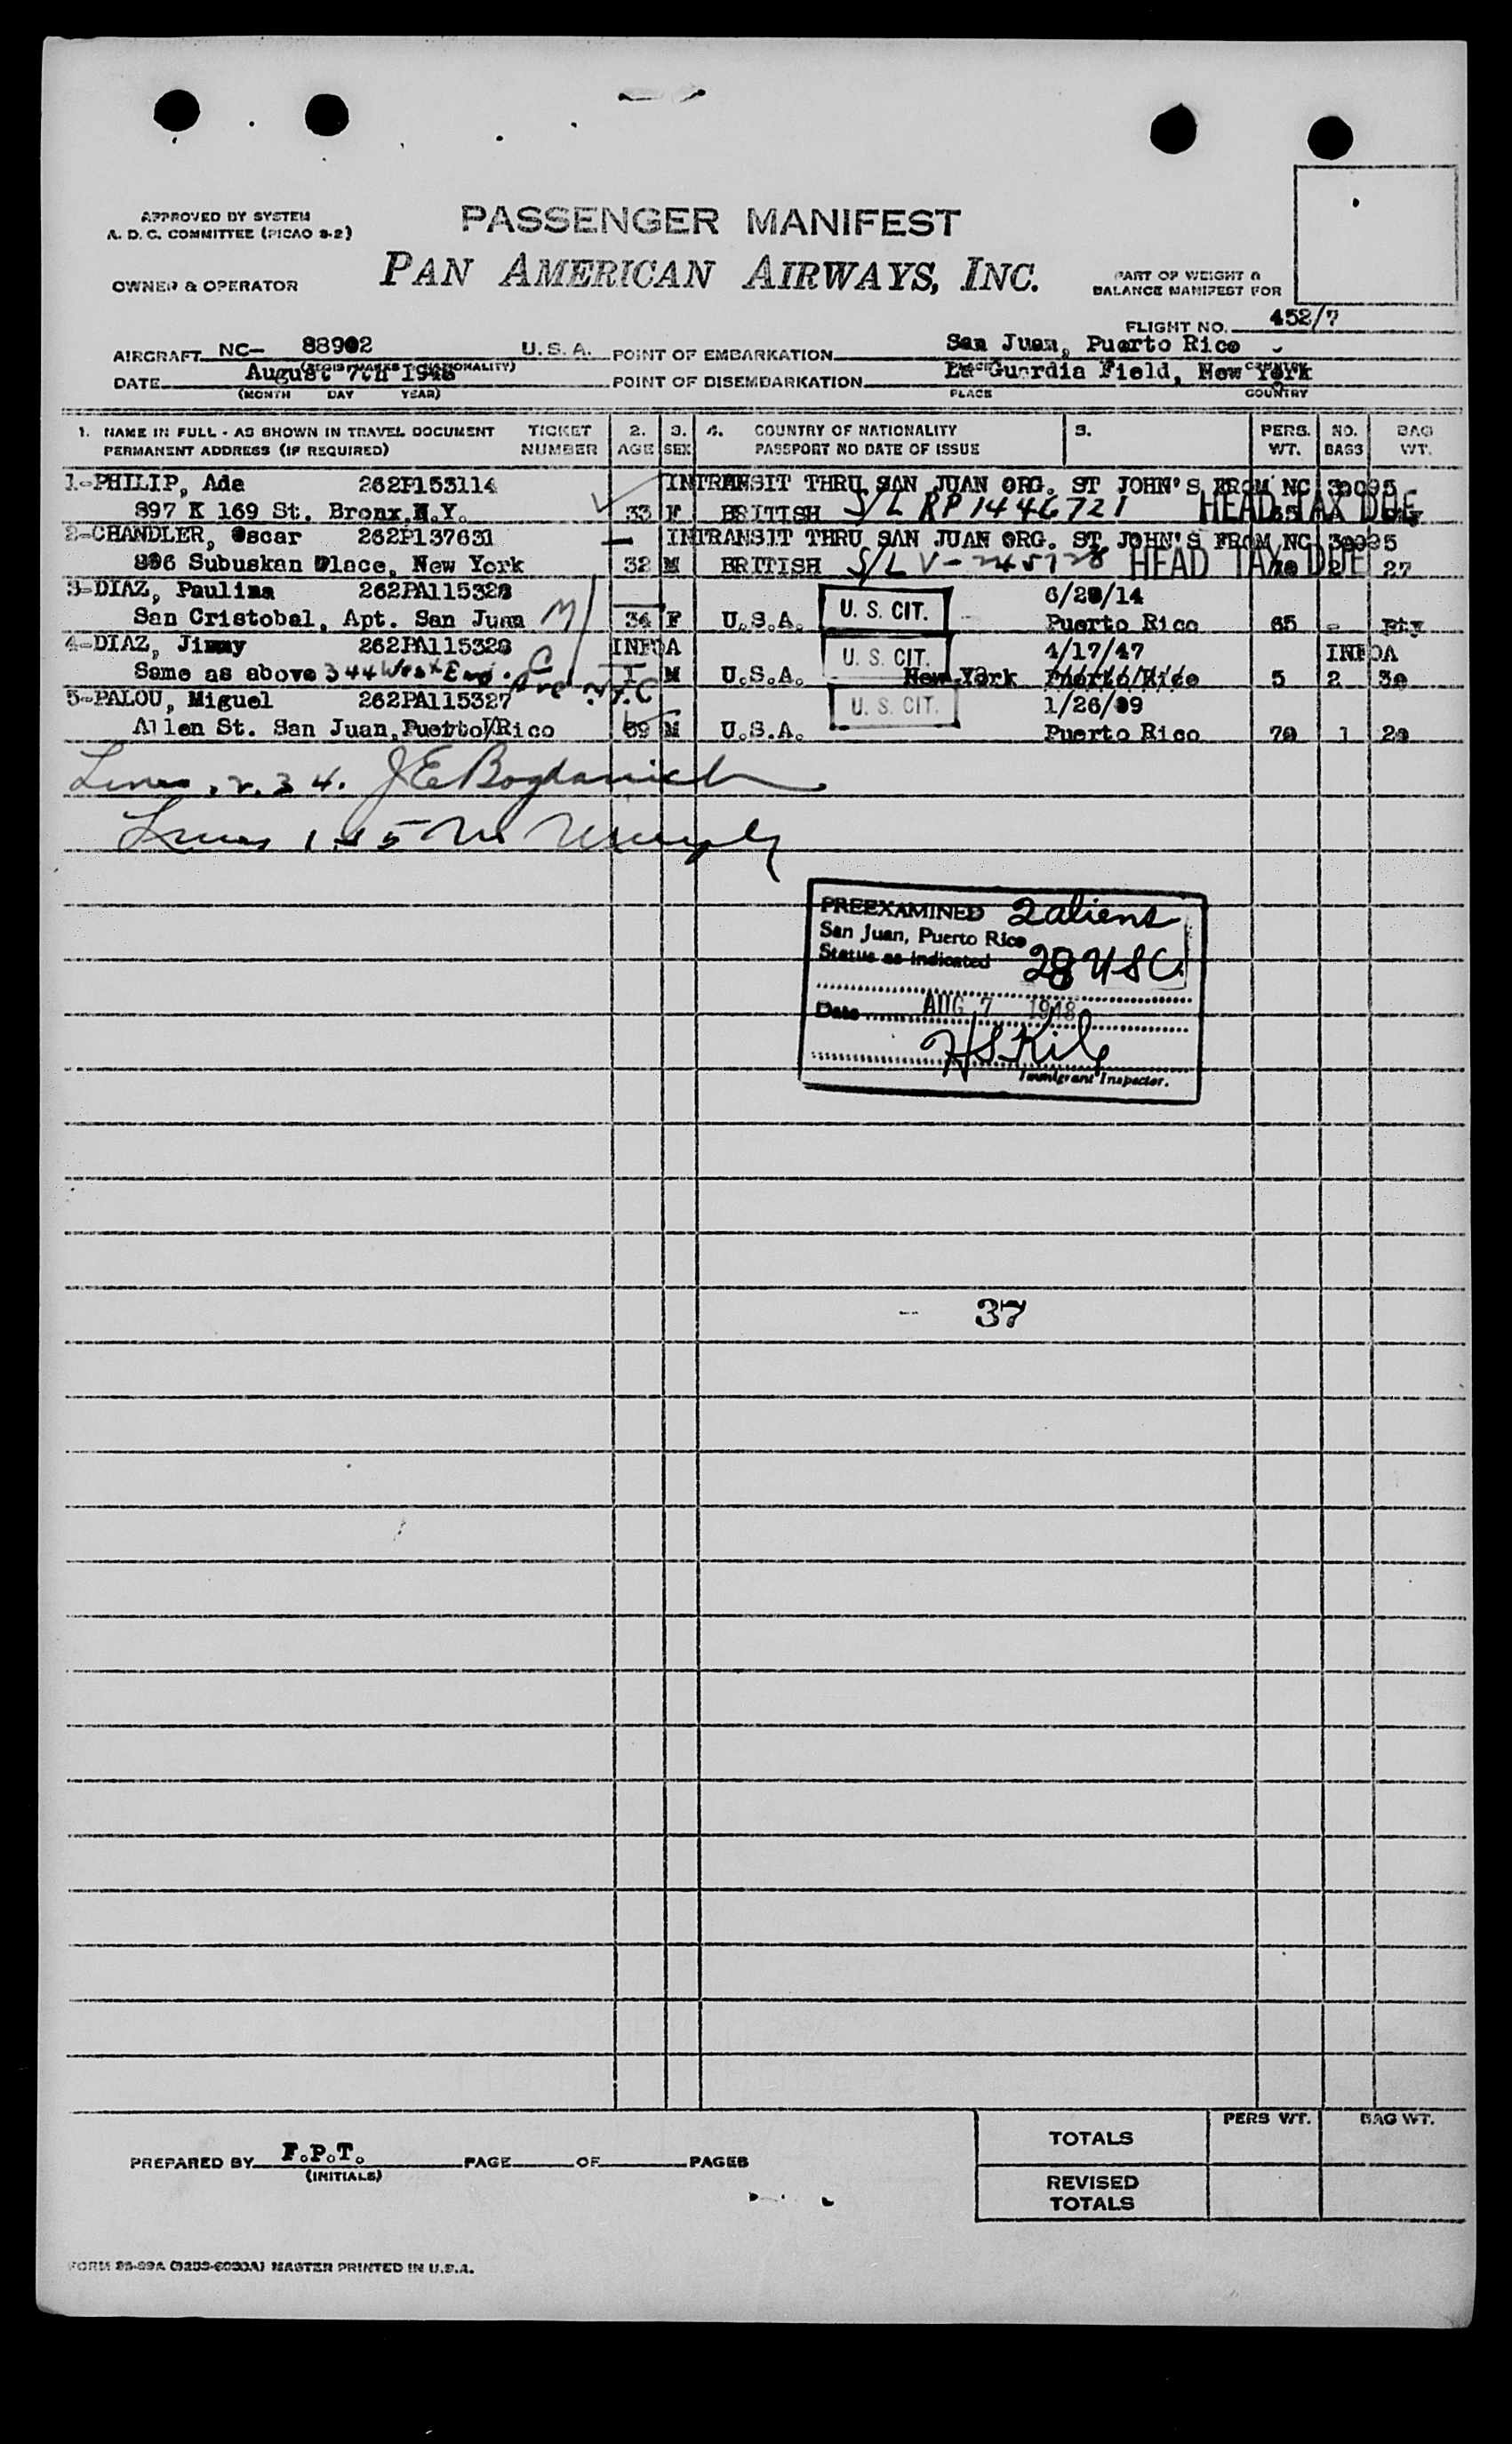 APPROVED BY SYSTEM
A. D. C. COMMITTEE (PICAO 9-2)
PASSENGER MANIFEST
OWNER & OPERATOR
PAN AMERICAN AIRWAYS, INC.
PART OF WEIGHT &
BALANCE MANIFEST FOR
FLIGHT NO. 452/7
AIRCRAFT NC- 88902 U.S.A. POINT OF EMBARKATION San Juan, Puerto Rico
DATE August 7th 1948 POINT OF DISEMBARKATION La Guardia Field, New York
(MONTH DAY YEAR) PLACE COUNTRY
1. NAME IN FULL - AS SHOWN IN TRAVEL DOCUMENT TICKET 2. 3. 4. COUNTRY OF NATIONALITY 5. PERS. NO. BAG
PERMANENT ADDRESS (IF REQUIRED) NUMBER AGE SEX PASSPORT NO DATE OF ISSUE WT. BAGS WT.
1-PHILIP, Ada 262P153114 INTRANSIT THRU SAN JUAN ORG. ST JOHN'S FROM NC 30095
897 E 169 St. Bronx, N.Y. 33 F BRITISH S/L RP 1446721 HEAD TAX DUE
2-CHANDLER, Oscar 262P137631 INTRANSIT THRU SAN JUAN ORG. ST JOHN'S FROM NC 30095
896 Subuskan Place, New York 32 M BRITISH S/L V-245728 HEAD TAX DUE 2 27
3-DIAZ, Paulina 262PA115328 6/28/14
San Cristobal, Apt. San Juan M 34 F U.S.A. U. S. CIT. Puerto Rico 65 - pty
4-DIAZ, Jimmy 262PA115328 INFOA 4/17/47 INFOA
Same as above 344 West End. Ave N.Y.C 1 M U.S.A. U. S. CIT. New York Puerto Rico 5 2 30
5-PALOU, Miguel 262PA115327 1/26/09
Allen St. San Juan, Puerto Rico 69 M U.S.A. U. S. CIT. Puerto Rico 70 1 20
Lines, 2. 3 4. J E Bogdanich
Lines 1 & 5
PREEXAMINED 2 aliens
San Juan, Puerto Rico
Status as indicated 28 USC
Date AUG 7 1948
Immigrant Inspector.
37
TOTALS PERS WT. BAG WT.
PREPARED BY F.P.T. PAGE OF PAGES
(INITIALS)
REVISED
TOTALS
MASTER PRINTED IN U.S.A.